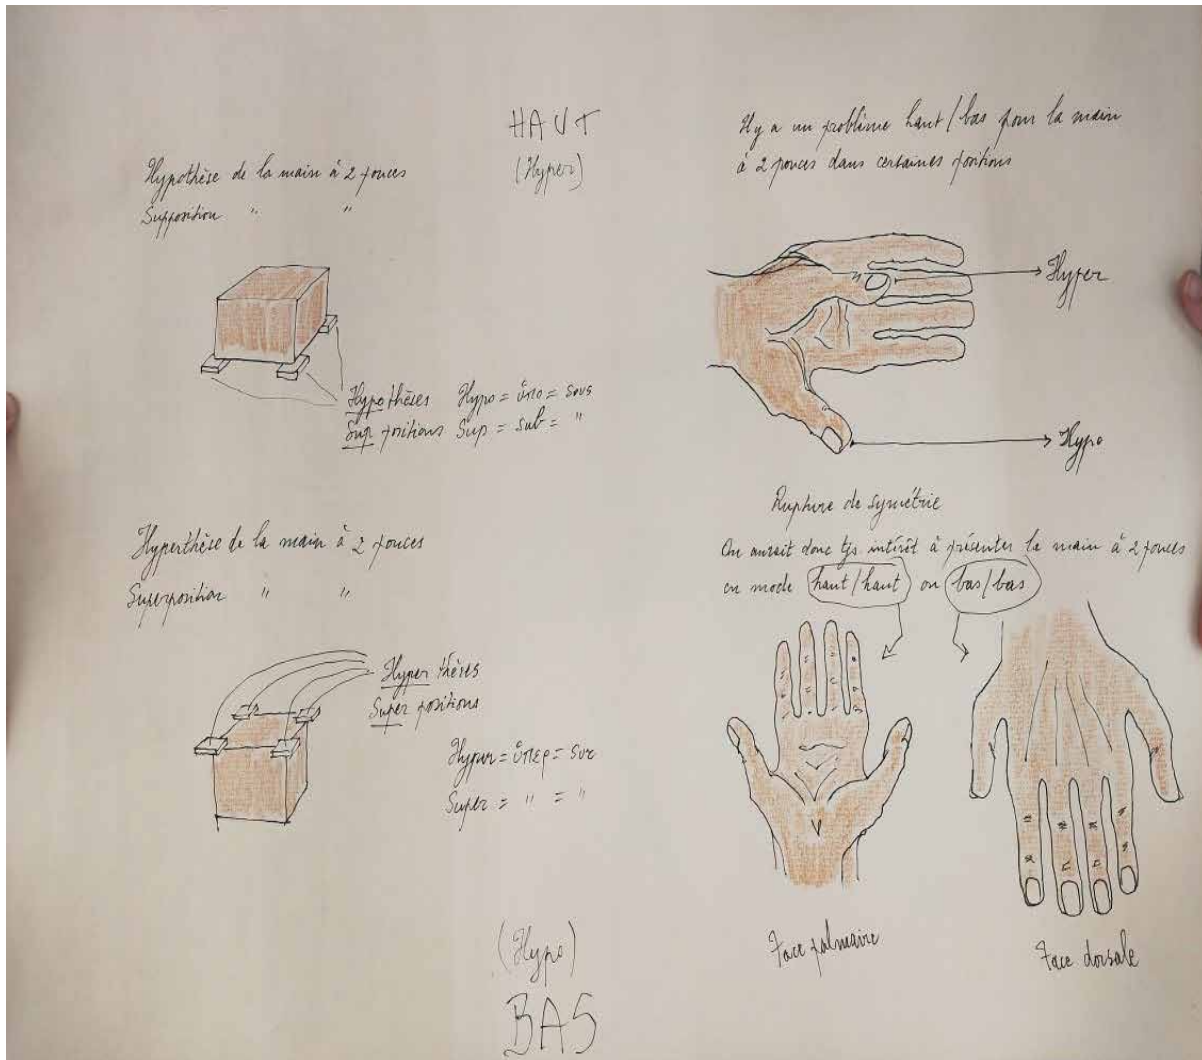 HAUT
(Hyper)
Hypothèse de la main à 2 pouces
Supposition " "
Hypothèses Hypo = ὑπο = sous
Sup positions Sup = sub = "
Hyperthèse de la main à 2 pouces
Superposition " "
Hyper thèses
Super positions
Hyper = ὑπερ = sur
Super = " = "
(Hypo)
BAS
Il y a un problème haut/bas pour la main
à 2 pouces dans certaines positions
Hyper
Hypo
Rupture de symétrie
On aurait donc tjs intérêt à présenter la main à 2 pouces
en mode haut/haut ou bas/bas
Face palmaire
Face dorsale